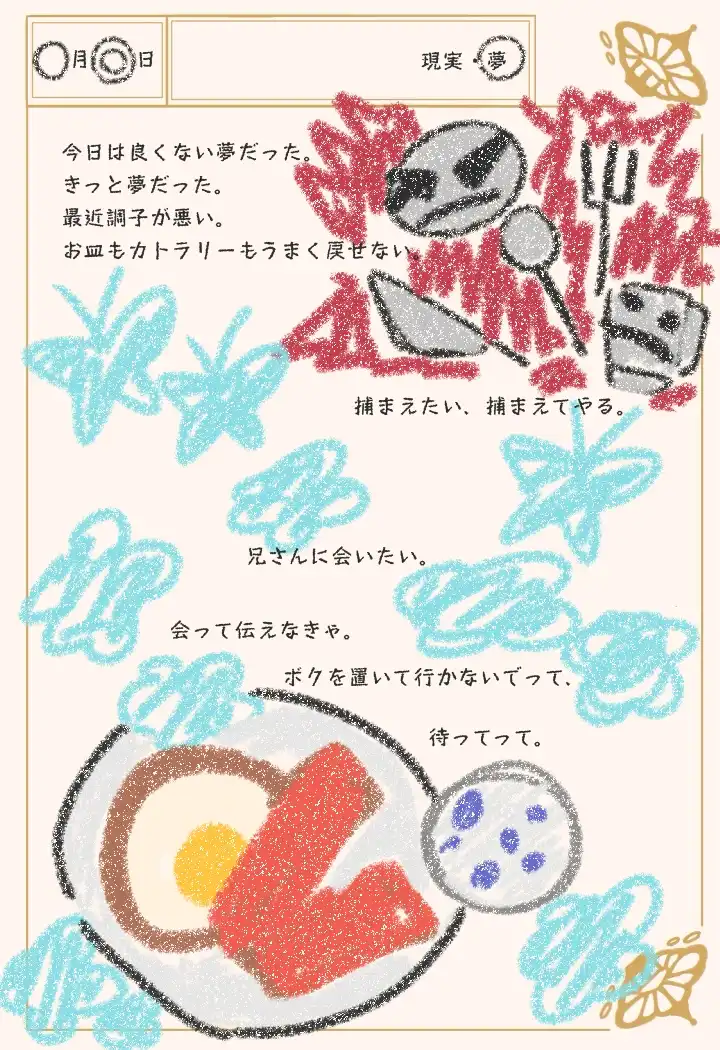 〇月◎日
現実・夢
今日は良くない夢だった。
きっと夢だった。
最近調子が悪い。
お皿もカトラリーもうまく戻せない。
捕まえたい、捕まえてやる。
兄さんに会いたい。
会って伝えなきゃ。
ボクを置いて行かないでって、
待ってって。